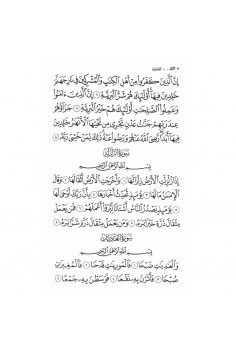 إِنَّ ٱلَّذِينَ كَفَرُوا۟ مِنْ أَهْلِ ٱلْكِتَٰبِ وَٱلْمُشْرِكِينَ فِى نَارِ جَهَنَّمَ
خَٰلِدِينَ فِيهَآ أُو۟لَٰٓئِكَ هُمْ شَرُّ ٱلْبَرِيَّةِ ٦ إِنَّ ٱلَّذِينَ ءَامَنُوا۟
وَعَمِلُوا۟ ٱلصَّٰلِحَٰتِ أُو۟لَٰٓئِكَ هُمْ خَيْرُ ٱلْبَرِيَّةِ ٧ جَزَآؤُهُمْ
عِندَ رَبِّهِمْ جَنَّٰتُ عَدْنٍ تَجْرِى مِن تَحْتِهَا ٱلْأَنْهَٰرُ خَٰلِدِينَ
فِيهَآ أَبَدًا رَّضِىَ ٱللَّهُ عَنْهُمْ وَرَضُوا۟ عَنْهُ ذَٰلِكَ لِمَنْ خَشِىَ رَبَّهُۥ ٨
سُورَةُ الزَّلْزَلَةِ
بِسْمِ ٱللَّهِ ٱلرَّحْمَٰنِ ٱلرَّحِيمِ
إِذَا زُلْزِلَتِ ٱلْأَرْضُ زِلْزَالَهَا ١ وَأَخْرَجَتِ ٱلْأَرْضُ أَثْقَالَهَا ٢ وَقَالَ
ٱلْإِنسَٰنُ مَا لَهَا ٣ يَوْمَئِذٍ تُحَدِّثُ أَخْبَارَهَا ٤ بِأَنَّ رَبَّكَ أَوْحَىٰ لَهَا
٥ يَوْمَئِذٍ يَصْدُرُ ٱلنَّاسُ أَشْتَاتًا لِّيُرَوْا۟ أَعْمَٰلَهُمْ ٦ فَمَن يَعْمَلْ
مِثْقَالَ ذَرَّةٍ خَيْرًا يَرَهُۥ ٧ وَمَن يَعْمَلْ مِثْقَالَ ذَرَّةٍ شَرًّا يَرَهُۥ ٨
سُورَةُ الْعَادِيَاتِ
بِسْمِ ٱللَّهِ ٱلرَّحْمَٰنِ ٱلرَّحِيمِ
وَٱلْعَٰدِيَٰتِ ضَبْحًا ١ فَٱلْمُورِيَٰتِ قَدْحًا ٢ فَٱلْمُغِيرَٰتِ
صُبْحًا ٣ فَأَثَرْنَ بِهِۦ نَقْعًا ٤ فَوَسَطْنَ بِهِۦ جَمْعًا ٥